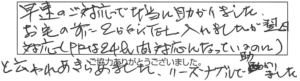 早速のご対応で本当に助かりました。
お宅の前に2社ぐらいTEL入れましたが翌日
対応(HPは24h以内対応になっているのに)
と云われあきらめました。リーズナブルで助かりました
ご協力ありがとうございました。